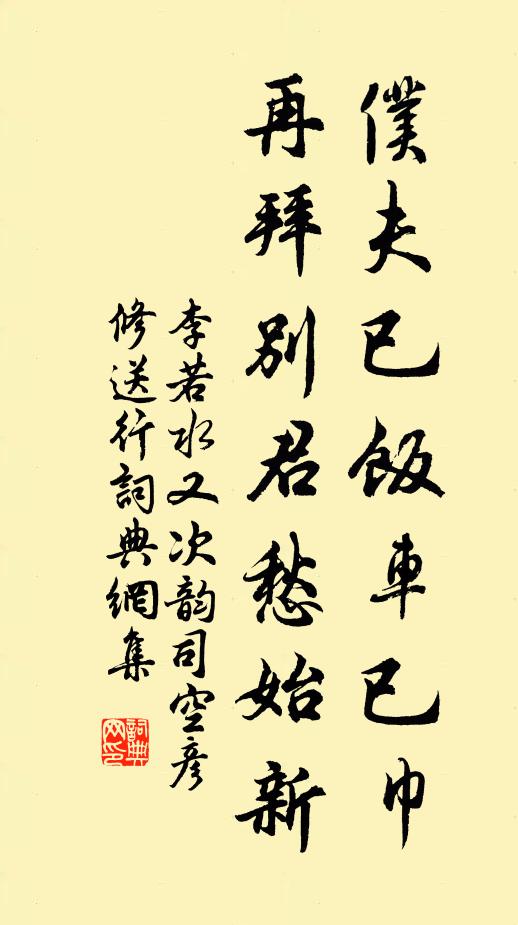 僕夫已飯車已巾
再拜別君愁始新
李若水又次韵司空彥
修送行詞典網集
詞典网印